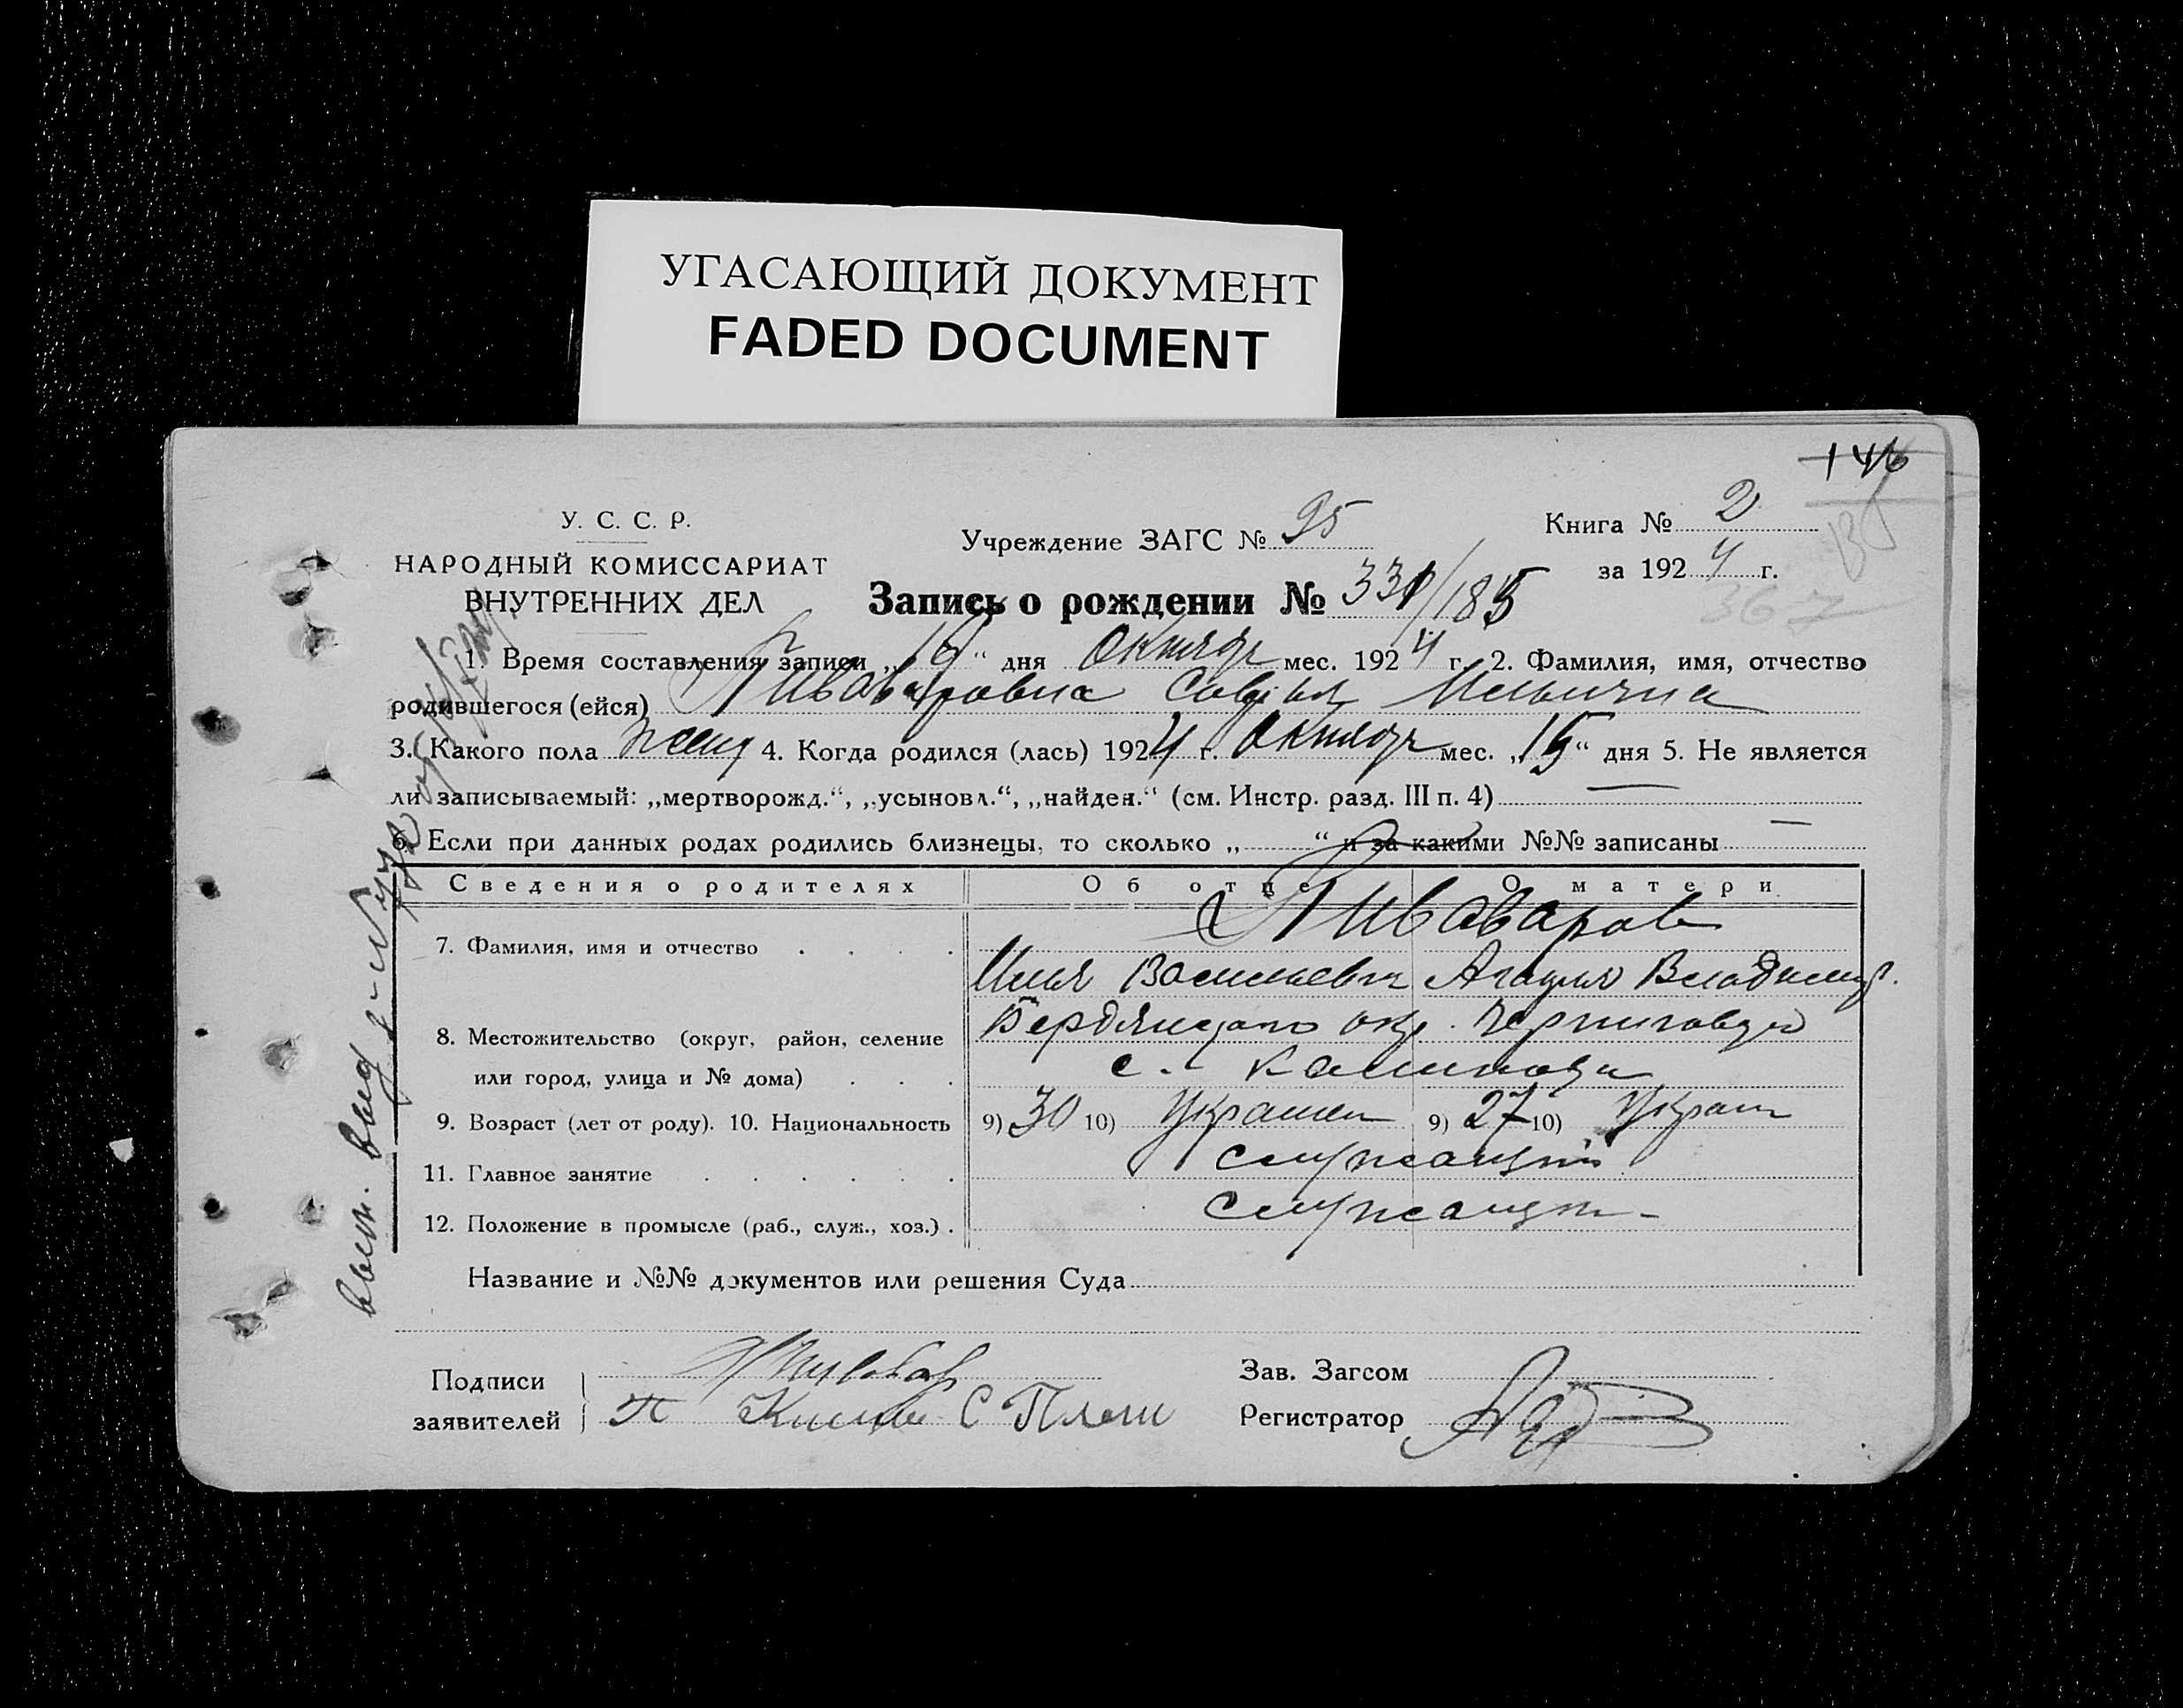 УГАСАЮЩИЙ ДОКУМЕНТ
FADED DOCUMENT
146
У. С. С. Р.
НАРОДНЫЙ КОМИССАРИАТ
ВНУТРЕННИХ ДЕЛ
Учреждение ЗАГС № 95
Книга № 2
за 1924 г.
Запись о рождении № 331/185
367
1. Время составления записи „19“ дня Октябр мес. 1924 г. 2. Фамилия, имя, отчество
родившегося (ейся) Пивоварова София Ильична
3. Какого пола женск 4. Когда родился (лась) 1924 г. Октябр мес. „15“ дня 5. Не является
ли записываемый: „мертворожд.“, „усыновл.“, „найден.“ (см. Инстр. разд. III п. 4) —
6. Если при данных родах родились близнецы, то сколько „ “ и за какими №№ записаны —
Сведения о родителях Об отце О матери
7. Фамилия, имя и отчество Пивоваров
Илья Васильевич Агафия Владимир.
8. Местожительство (округ, район, селение Бердянского окр. Черниговского
или город, улица и № дома) с.
9. Возраст (лет от роду). 10. Национальность 9) 30 10) Украинец 9) 27 10) Украин
11. Главное занятие служащий
12. Положение в промысле (раб., служ., хоз.) служащий
Название и №№ документов или решения Суда
Подписи
заявителей
Зав. Загсом
Регистратор